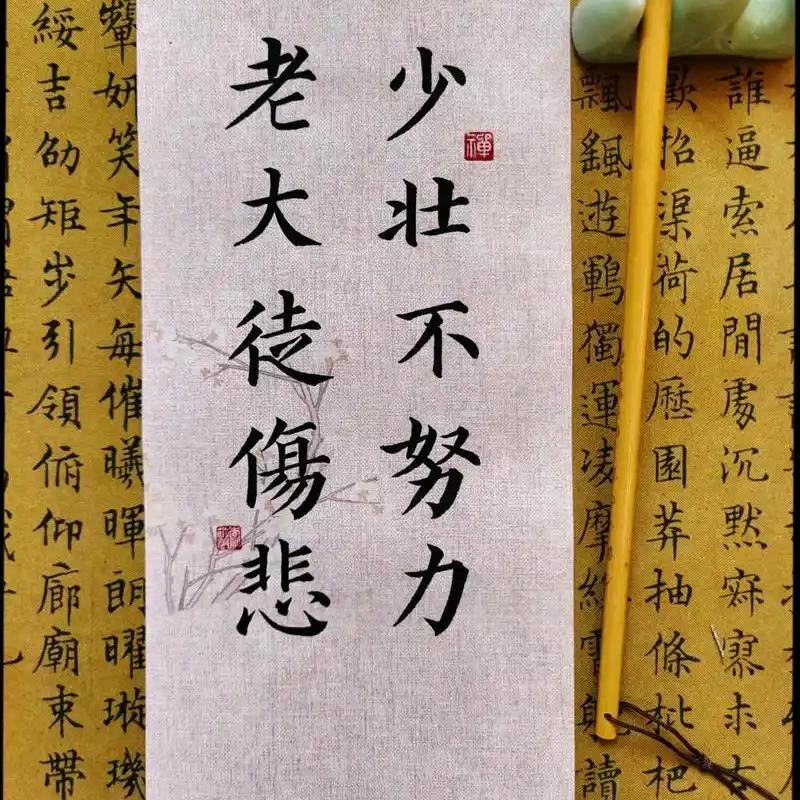 誰逼索居閒處沉默寂寥求古
歡招渠荷的歷園莽抽條枇杷
飄飖遊鵾獨運凌摩絳霄耽讀
少壯不努力
禪
老大徒傷悲
顰妍笑年矢每催曦暉朗曜璇璣
綏吉劭矩步引領俯仰廊廟束帶